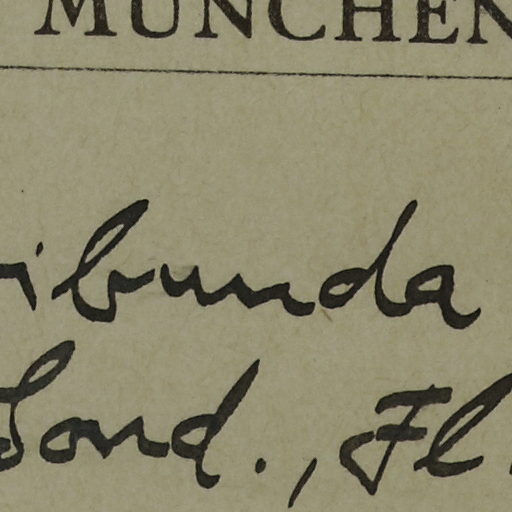 MÜNCHEN
ibunda
Lond., Fl.